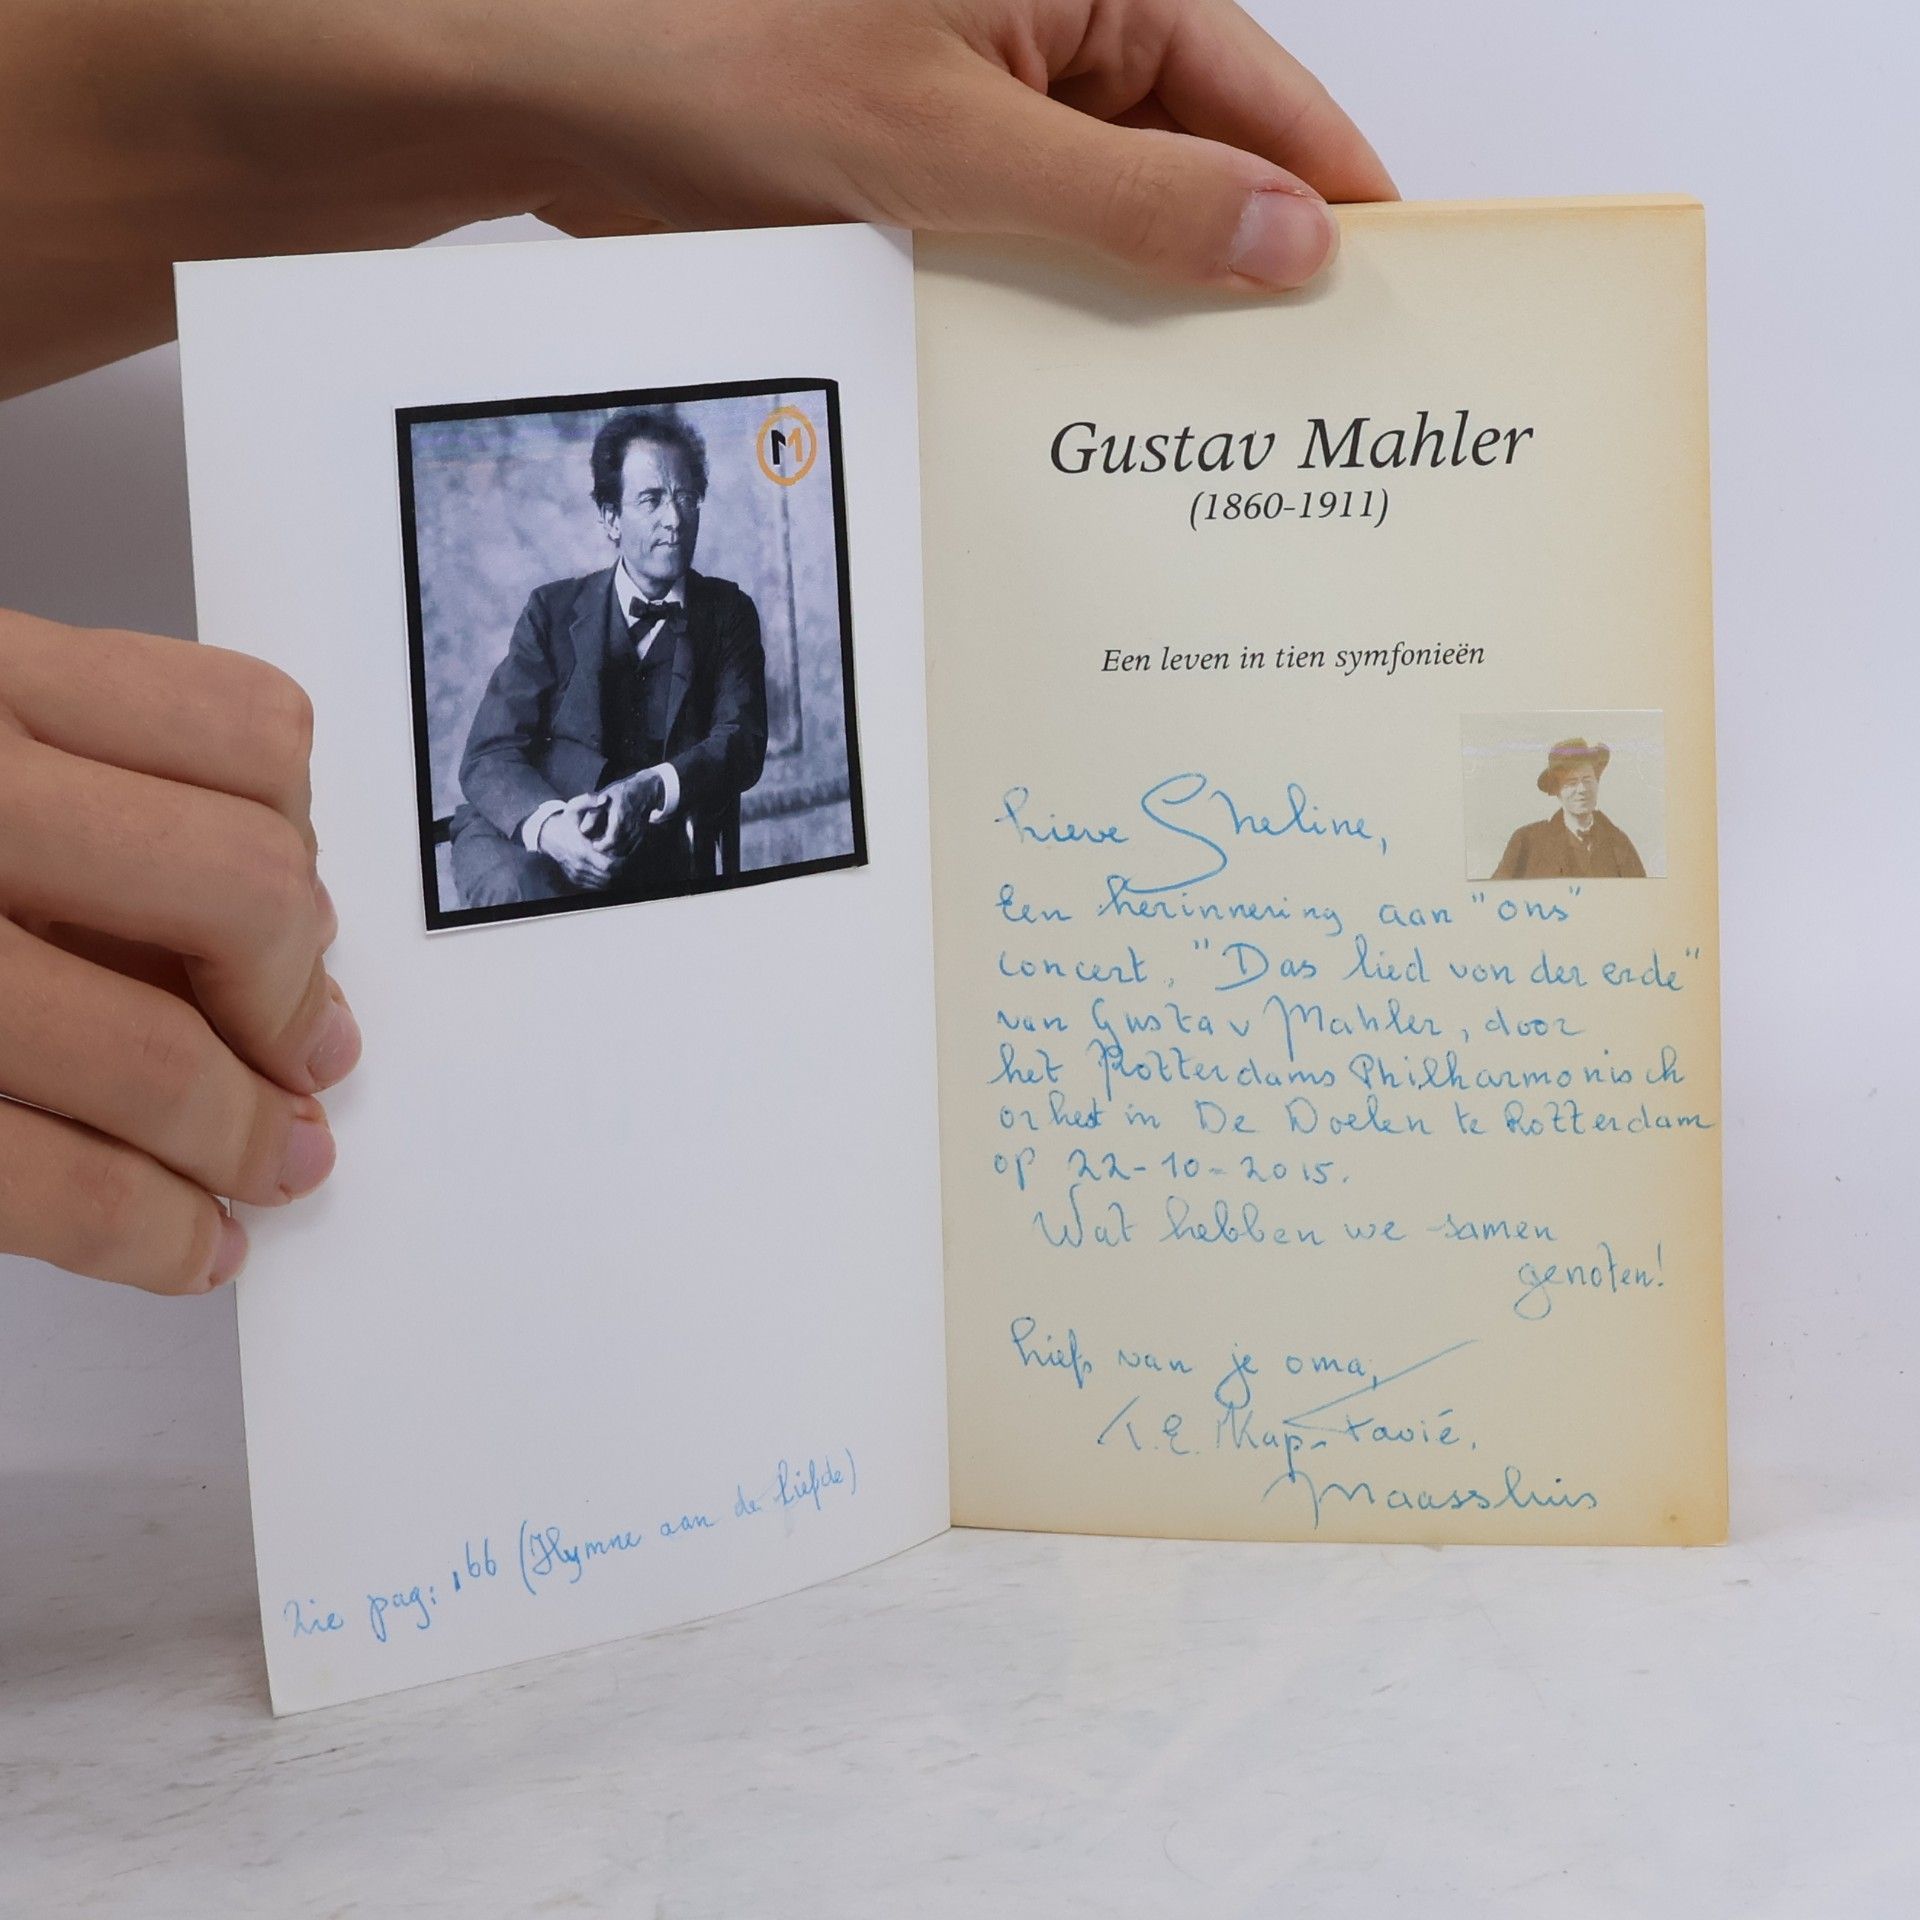 M
Zie pag: 166 (Hymne aan de liefde)
Gustav Mahler
(1860-1911)
Een leven in tien symfonieën
Lieve Sheline,
Een herinnering aan "ons"
concert, "Das lied von der erde"
van Gustav Mahler, door
het Rotterdams Philharmonisch
orkest in De Doelen te Rotterdam
op 22-10-2015.
Wat hebben we samen
genoten!
Liefs van je oma,
Maassluis